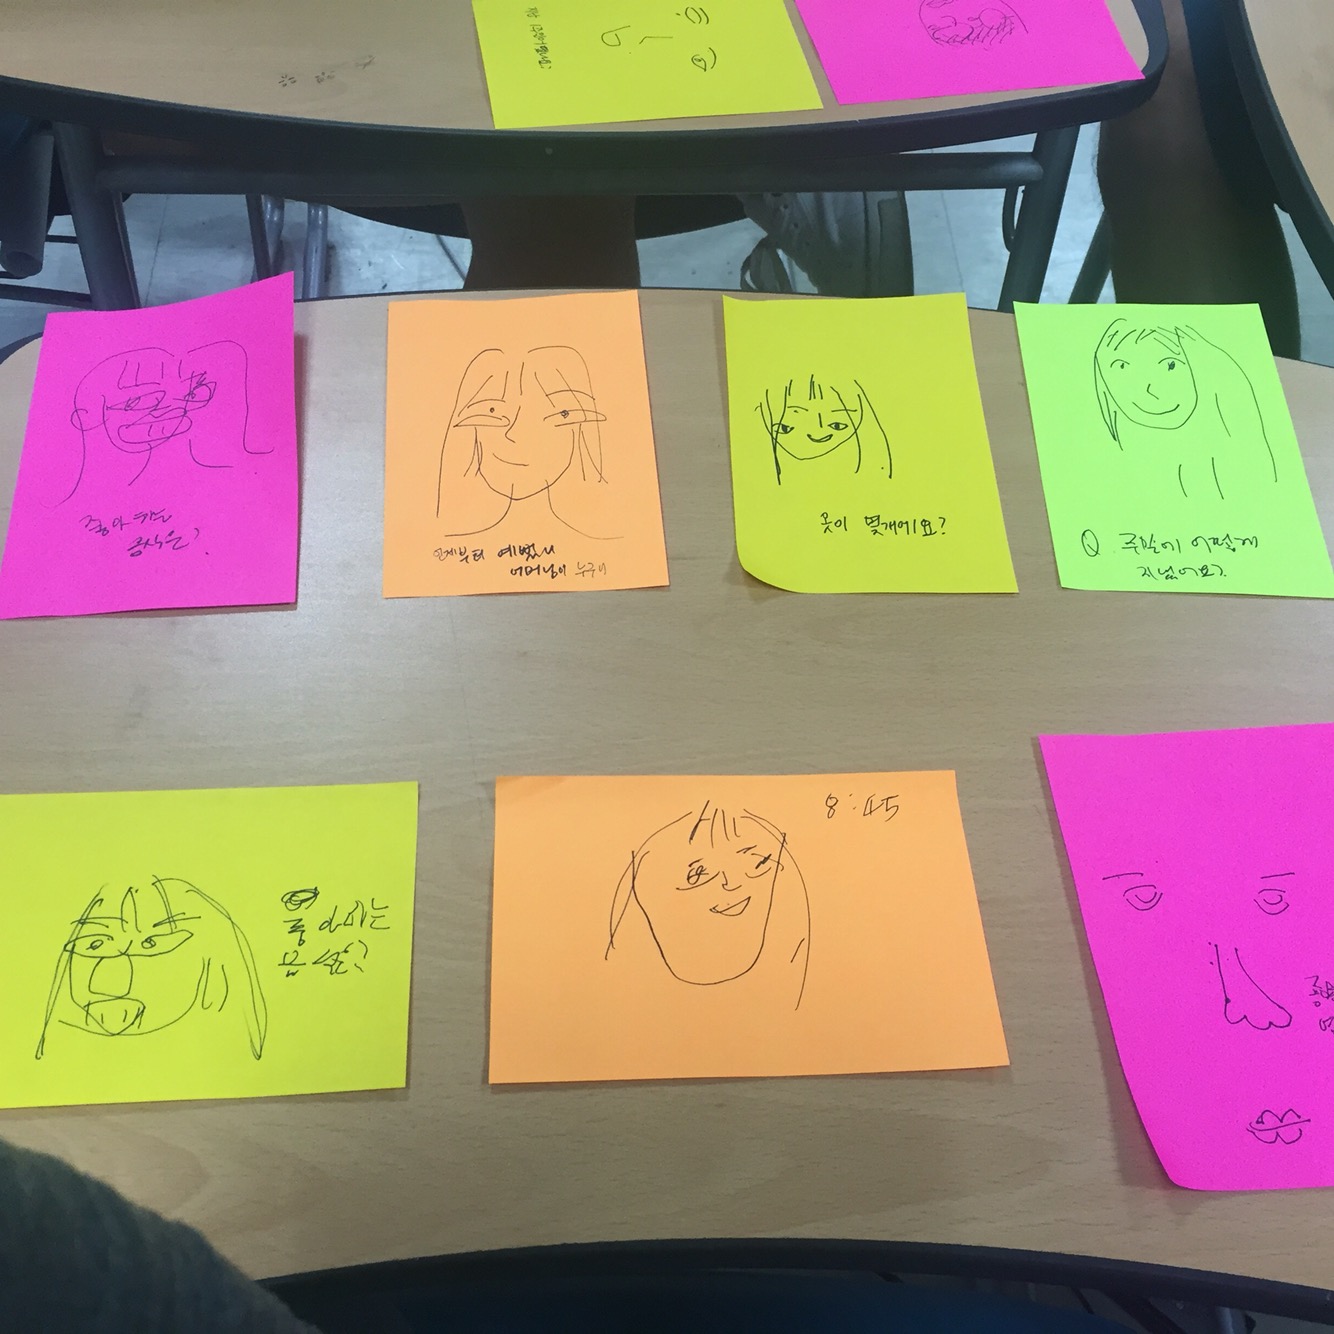 좋아하는
음식은?
언제부터 예뻤나
어머님이 누구니
옷이 몇개에요?
Q. 주말에 어떻게
지냈어요?
좋아하는
음식은?
8:45